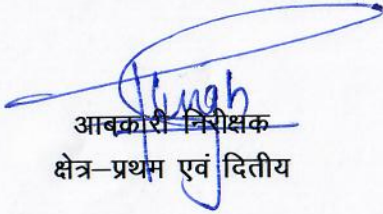 आबकारी निरीक्षक
क्षेत्र–प्रथम एवं दितीय